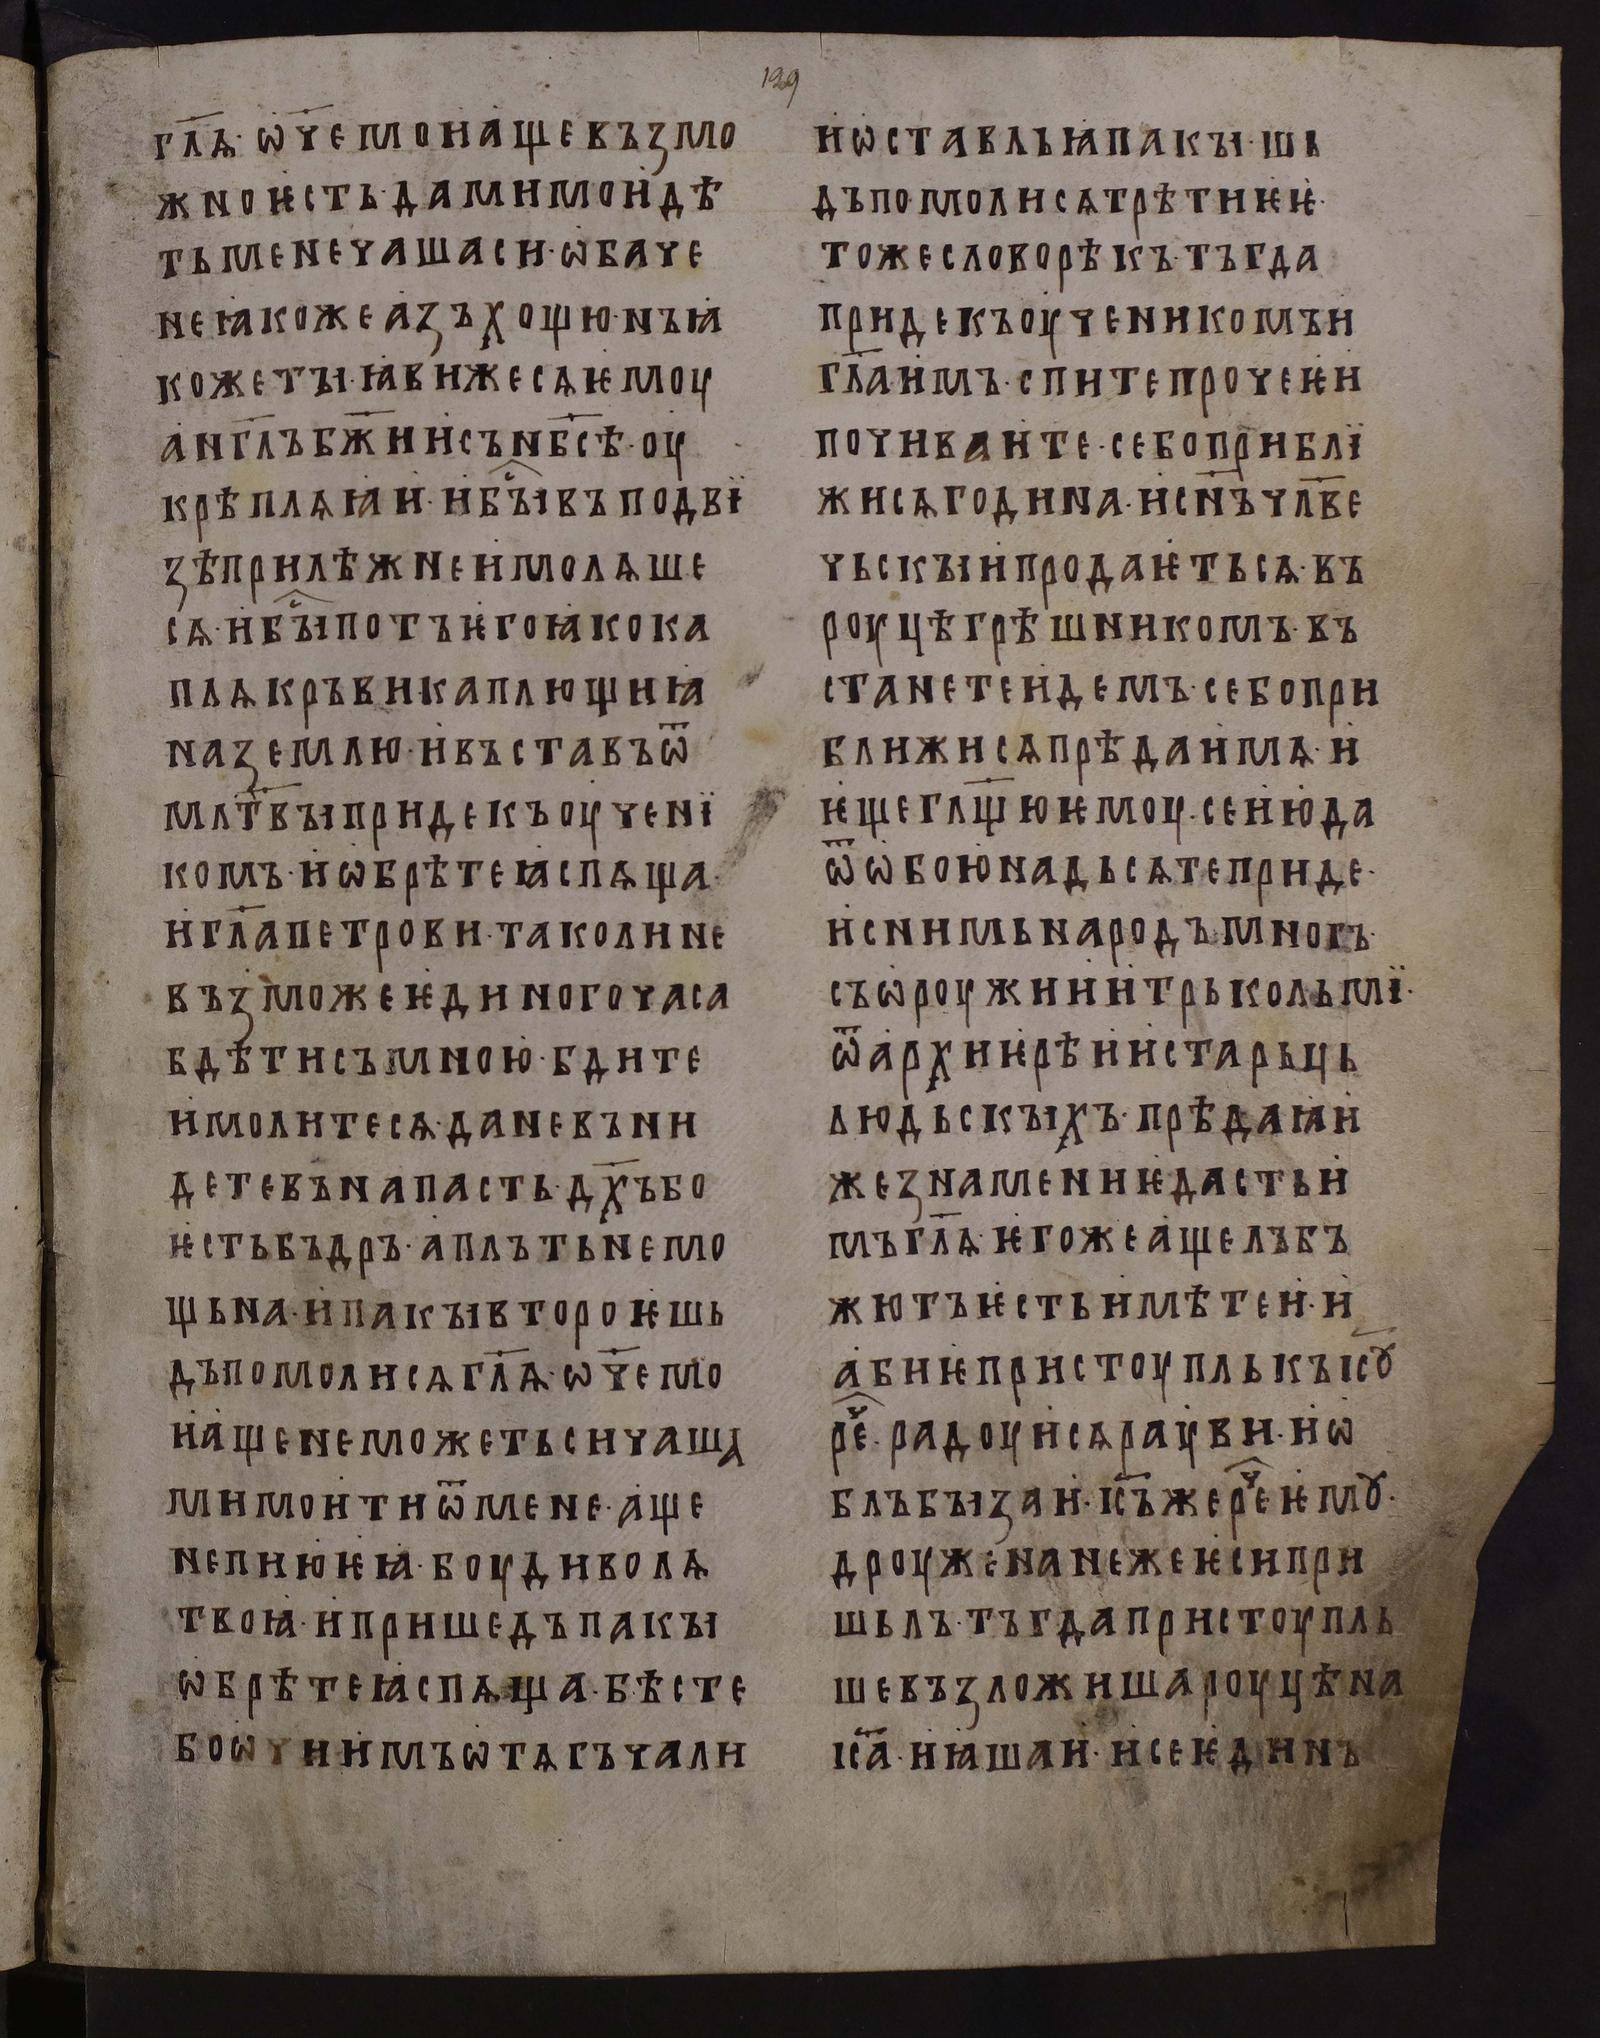 129
гл҃ѧ·ѡч҃емонащевъзмо
жноѥсть·дамимоидѣ
тьменечашаси·ѡбаче
неꙗкожеазъхощю·нъꙗ
кожеты·ꙗвижесѧѥмоу
англ҃ъбж҃иисън҃бсѣ·оу
крѣплѧꙗи·ибы̑въподвї
зѣприлѣжнеимолѧше
сѧ·ибы̑потъѥгоꙗкока
плѧкръвикаплющиꙗ
наземлю·ивъставъѿ
млт҃выпридекъоученї
комъ·иѡбрѣтеꙗспѧща·
игл҃апетрови·таколине
възможеѥдиногочаса
бдѣтисъмною·бдите
имолитесѧ·даневъни
детевънапасть·дх҃ъбо
ѥстьбъдръ·аплътьнемо
щьна·ипакывтороѥшь
дъпомолисѧгл҃ѧ·ѡч҃емо
иащенеможетьсичаша
мимоитиѿмене·аще
непиюѥꙗ·боудиволѧ
твоꙗ·ипришедъпакы
ѡбрѣтеꙗспѧща·бѣсте
боѡчиимъѡтѧгъчали
иѡставльꙗпакы·шь
дъпомолисѧтрѣтиѥѥ·
тожесловорѣкъ·тъгда
придекъоученикомъи
гл҃аимъ·спитепрочеѥи
почиваите·себоприблї
жисѧгодина·исн҃ъчл҃ве
чьскыипродаѥтьсѧ·въ
роуцѣгрѣшникомъ·въ
станетеидемъ·себопри
ближисѧпрѣдаимѧ·и
ѥщеглщ҃юѥмоу·сеиюда
ѿѡбоюнадьсѧтепридe·
иснимьнародъмногъ·
съѡроужииитрькольмї·
ѿархиѥрѣиистарьць
людьскыхъ·прѣдаꙗи
жезнамениѥдастьи
мъгл҃ѧ·ѥгожеащелъбъ
жютъѥстьимѣтеи·и
абиѥпристоупль къіс҃ꙋ
рече̑·радоуисѧрауви·иѡ
блъбызаи·іс҃ъжерече̑ѥмꙋ·
дроуженанежеѥсипри
шьлъ·тъгдапристоупль
шевъзложишароуцѣна
іс҃а·иꙗшаи·исеѥдинъ